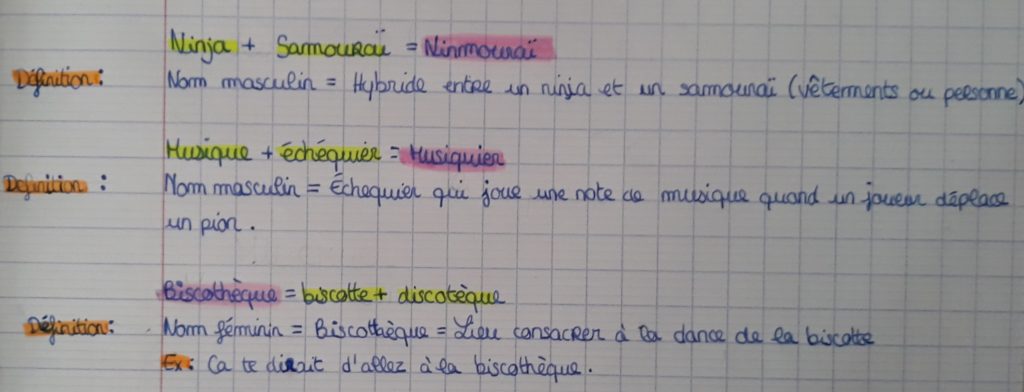 Ninja + Samouraï = Ninmouraï
Définition : Nom masculin = Hybride entre un ninja et un samouraï (vêtements ou personne)
Musique + échéquier = Musiquier
Definition : Nom masculin = Échequier qui joue une note de musique quand un joueur déplace
un pion.
Biscothèque = biscotte + discotèque
Définition : Nom féminin = Biscothèque = Lieu consacrer à la dance de la biscotte
Ex : Ca te dirait d'allez à la biscothèque.